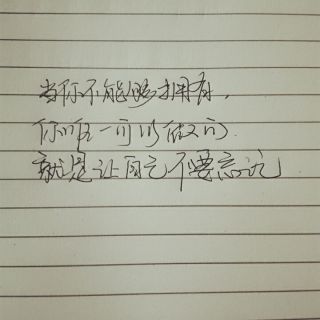 当你不能够拥有，
你唯一可以做的
就是让自己不要忘记